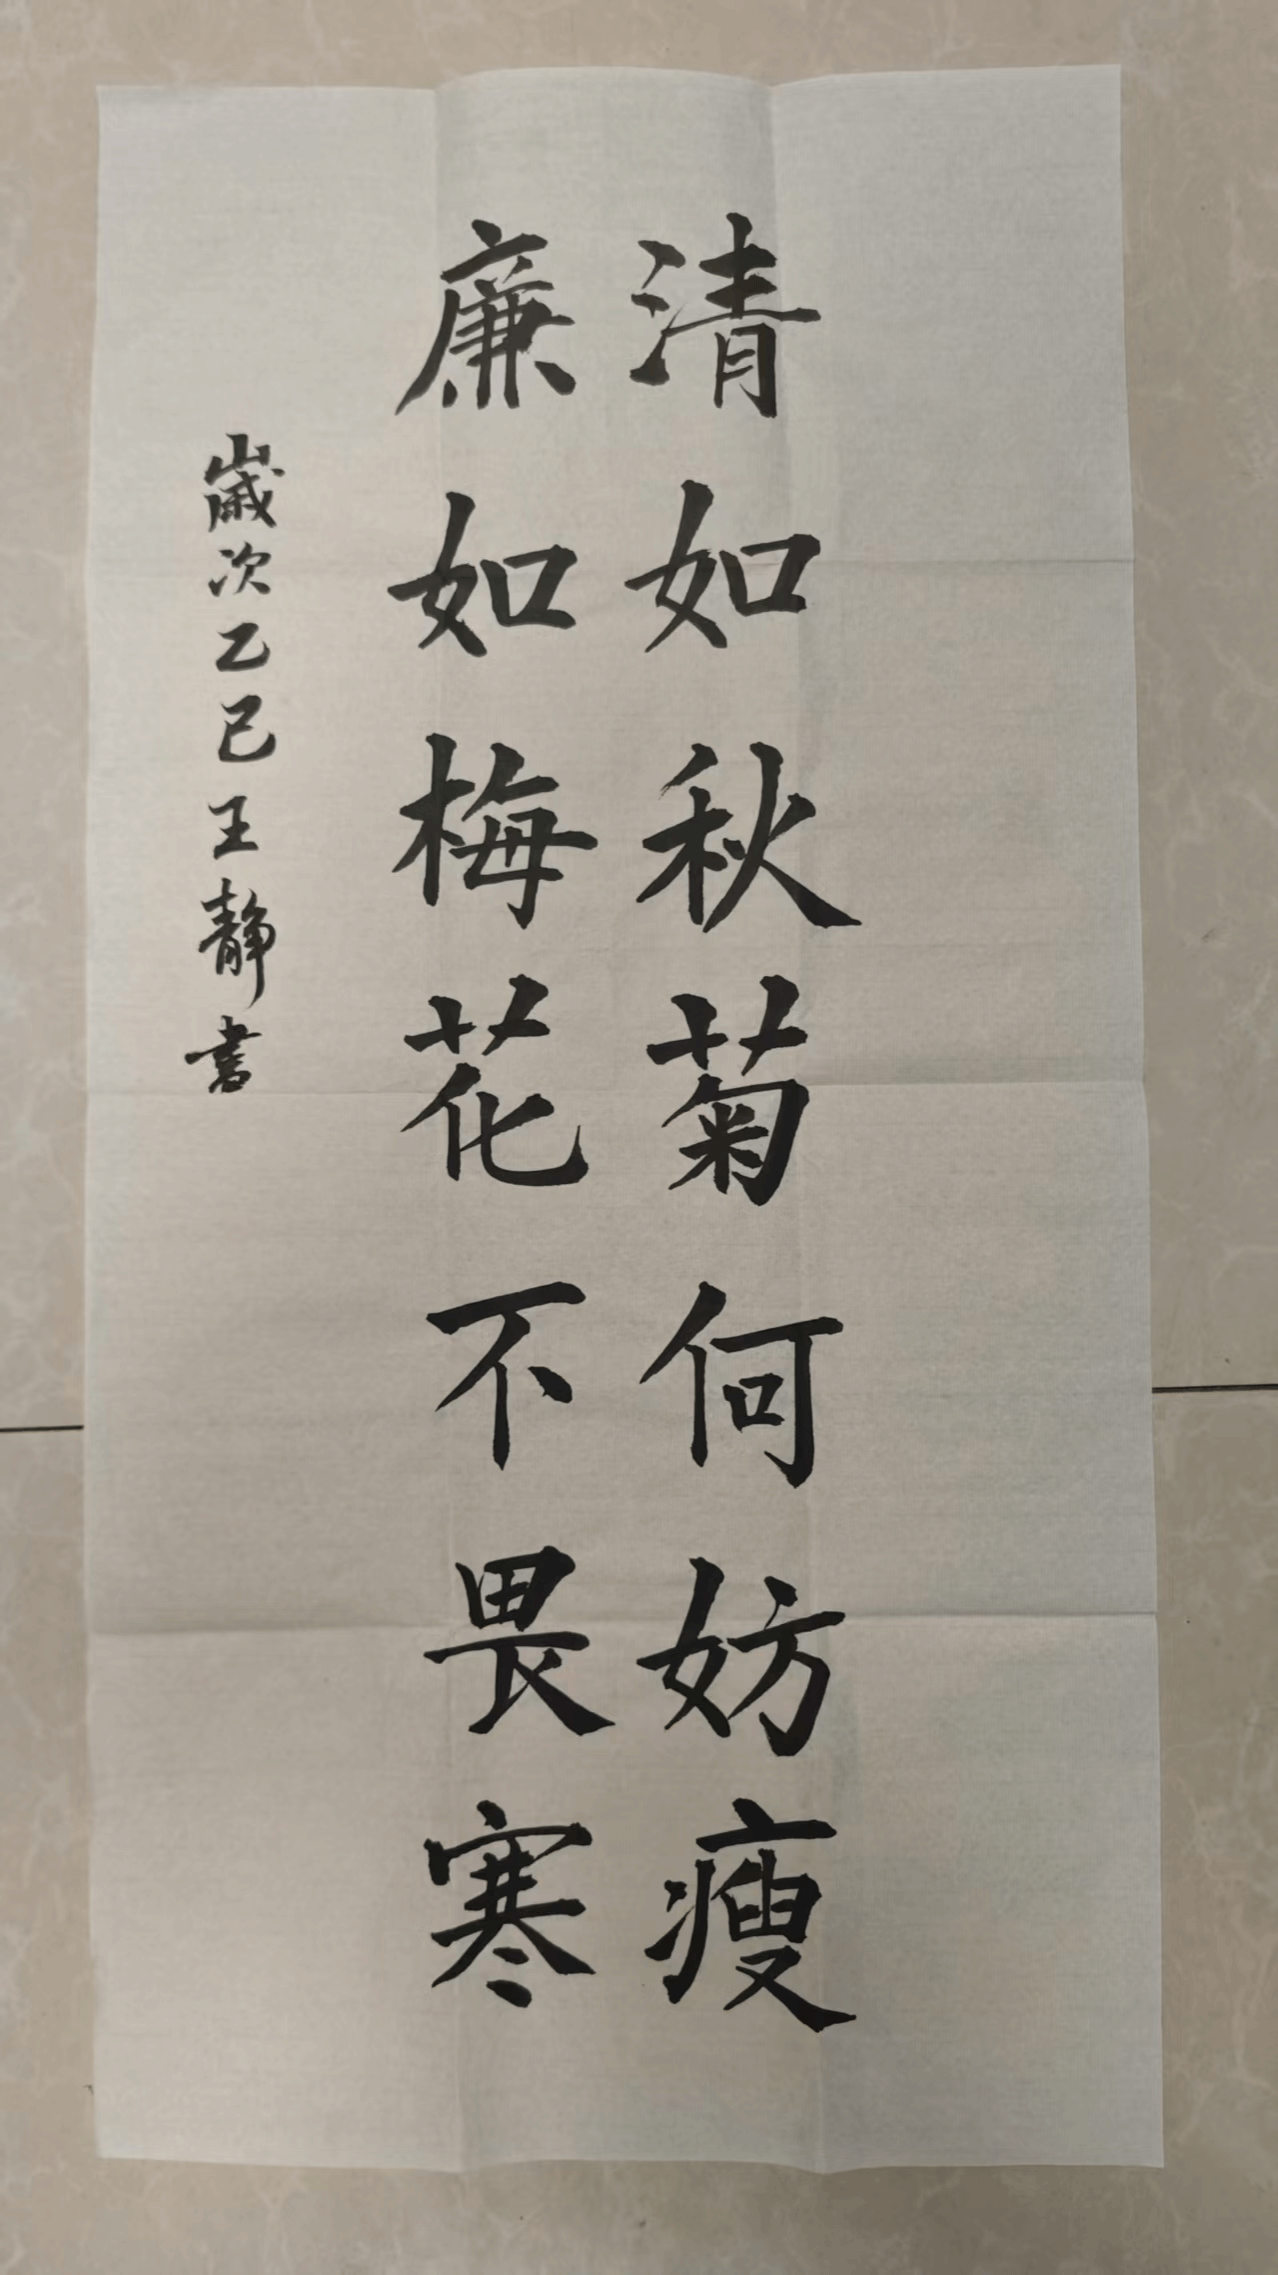 清如秋菊何妨瘦
廉如梅花不畏寒
歲次乙巳王靜書